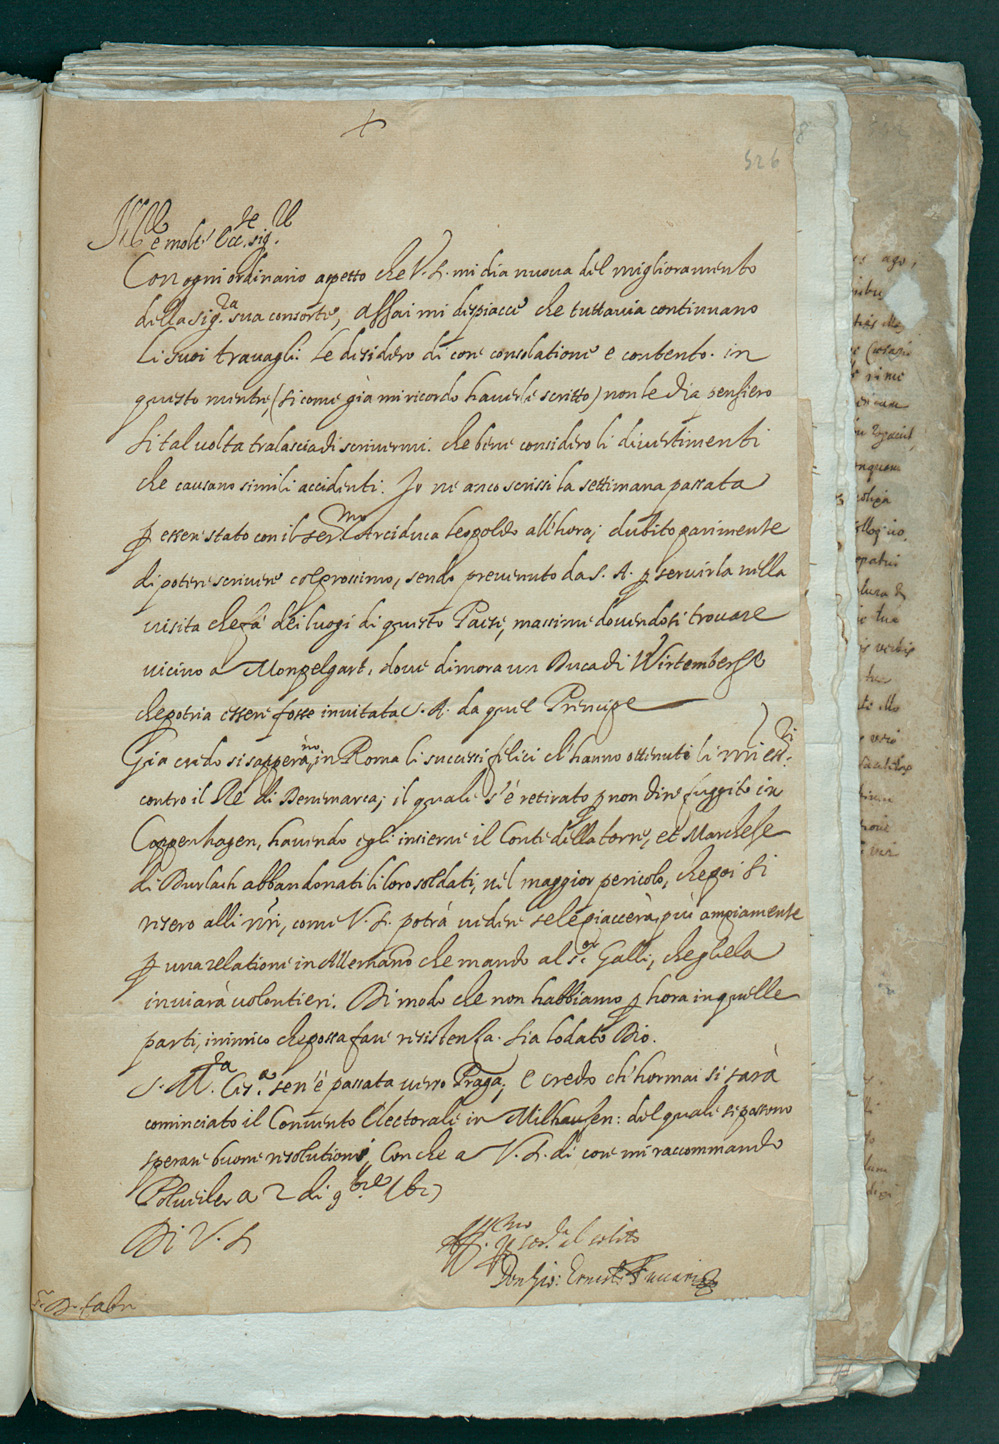 +
526
Ill.re e molt' Ecc.te sig.r
Con ogni ordinario aspetto che V. S. mi dia nuova del miglioramento
della sig.ra sua consorte, assai mi dispiacce che tuttavia continuano
li suoi travagli. Le desidero di core consolatione e contento. in
questo mentre, (si come già mi ricordo haverle scritto) non le dia pensiero
si tal volta tralascia di scrivermi. che bene considero li divertimenti
che causano simili accidenti. Io ne anco scrissi la settimana passata
p esser stato con il Ser.mo Arciduca Leopoldo all'hora; dubito parimente
di potere scrivere col prossimo, sendo prevenuto da S. A. p servirla nella
visita che fà dei luogi di questo Paese, massime dovendosi trovare
vicino a Monpelgart, dove dimora un Duca di Wirtemberge
che potria essere fosse invitata S. A. da quel Principe
Gia credo si saperàno in Roma li successi felici ch'hanno ottenuti li nri ess.ti
contro il Re di Denemarca; il quale s'è retirato p non dire fuggito in
Coppenhagen, havendo egli insieme il Conte della torre, et Marchese
di Durlach abbandonati li loro soldati, nel maggior pericolo, che poi si
resero alli nri, come V. S. potrà vedere se le piaccerà, più ampiamente
p una relatione in Allemano che mando al s.or Galli, che gliela
inviarà volontieri. Di modo che non habbiamo p hora in quelle
parti, inimico che possa fare resistenza. Sia lodato Dio.
S. M.ta Ces.a sen'è passata verso Praga, e credo ch'hormai si sarà
cominciato il Convento Electorale in Milhausen: del quale si possono
sperare buone resolutioni, Con che a V. S. di core mi raccommando
Polwiler a 2 di 9bre (627
Di V. S.
Aff.mo p ser.la al solito
Don Gio: Ernesto Fuccari
S.r D. Fabri